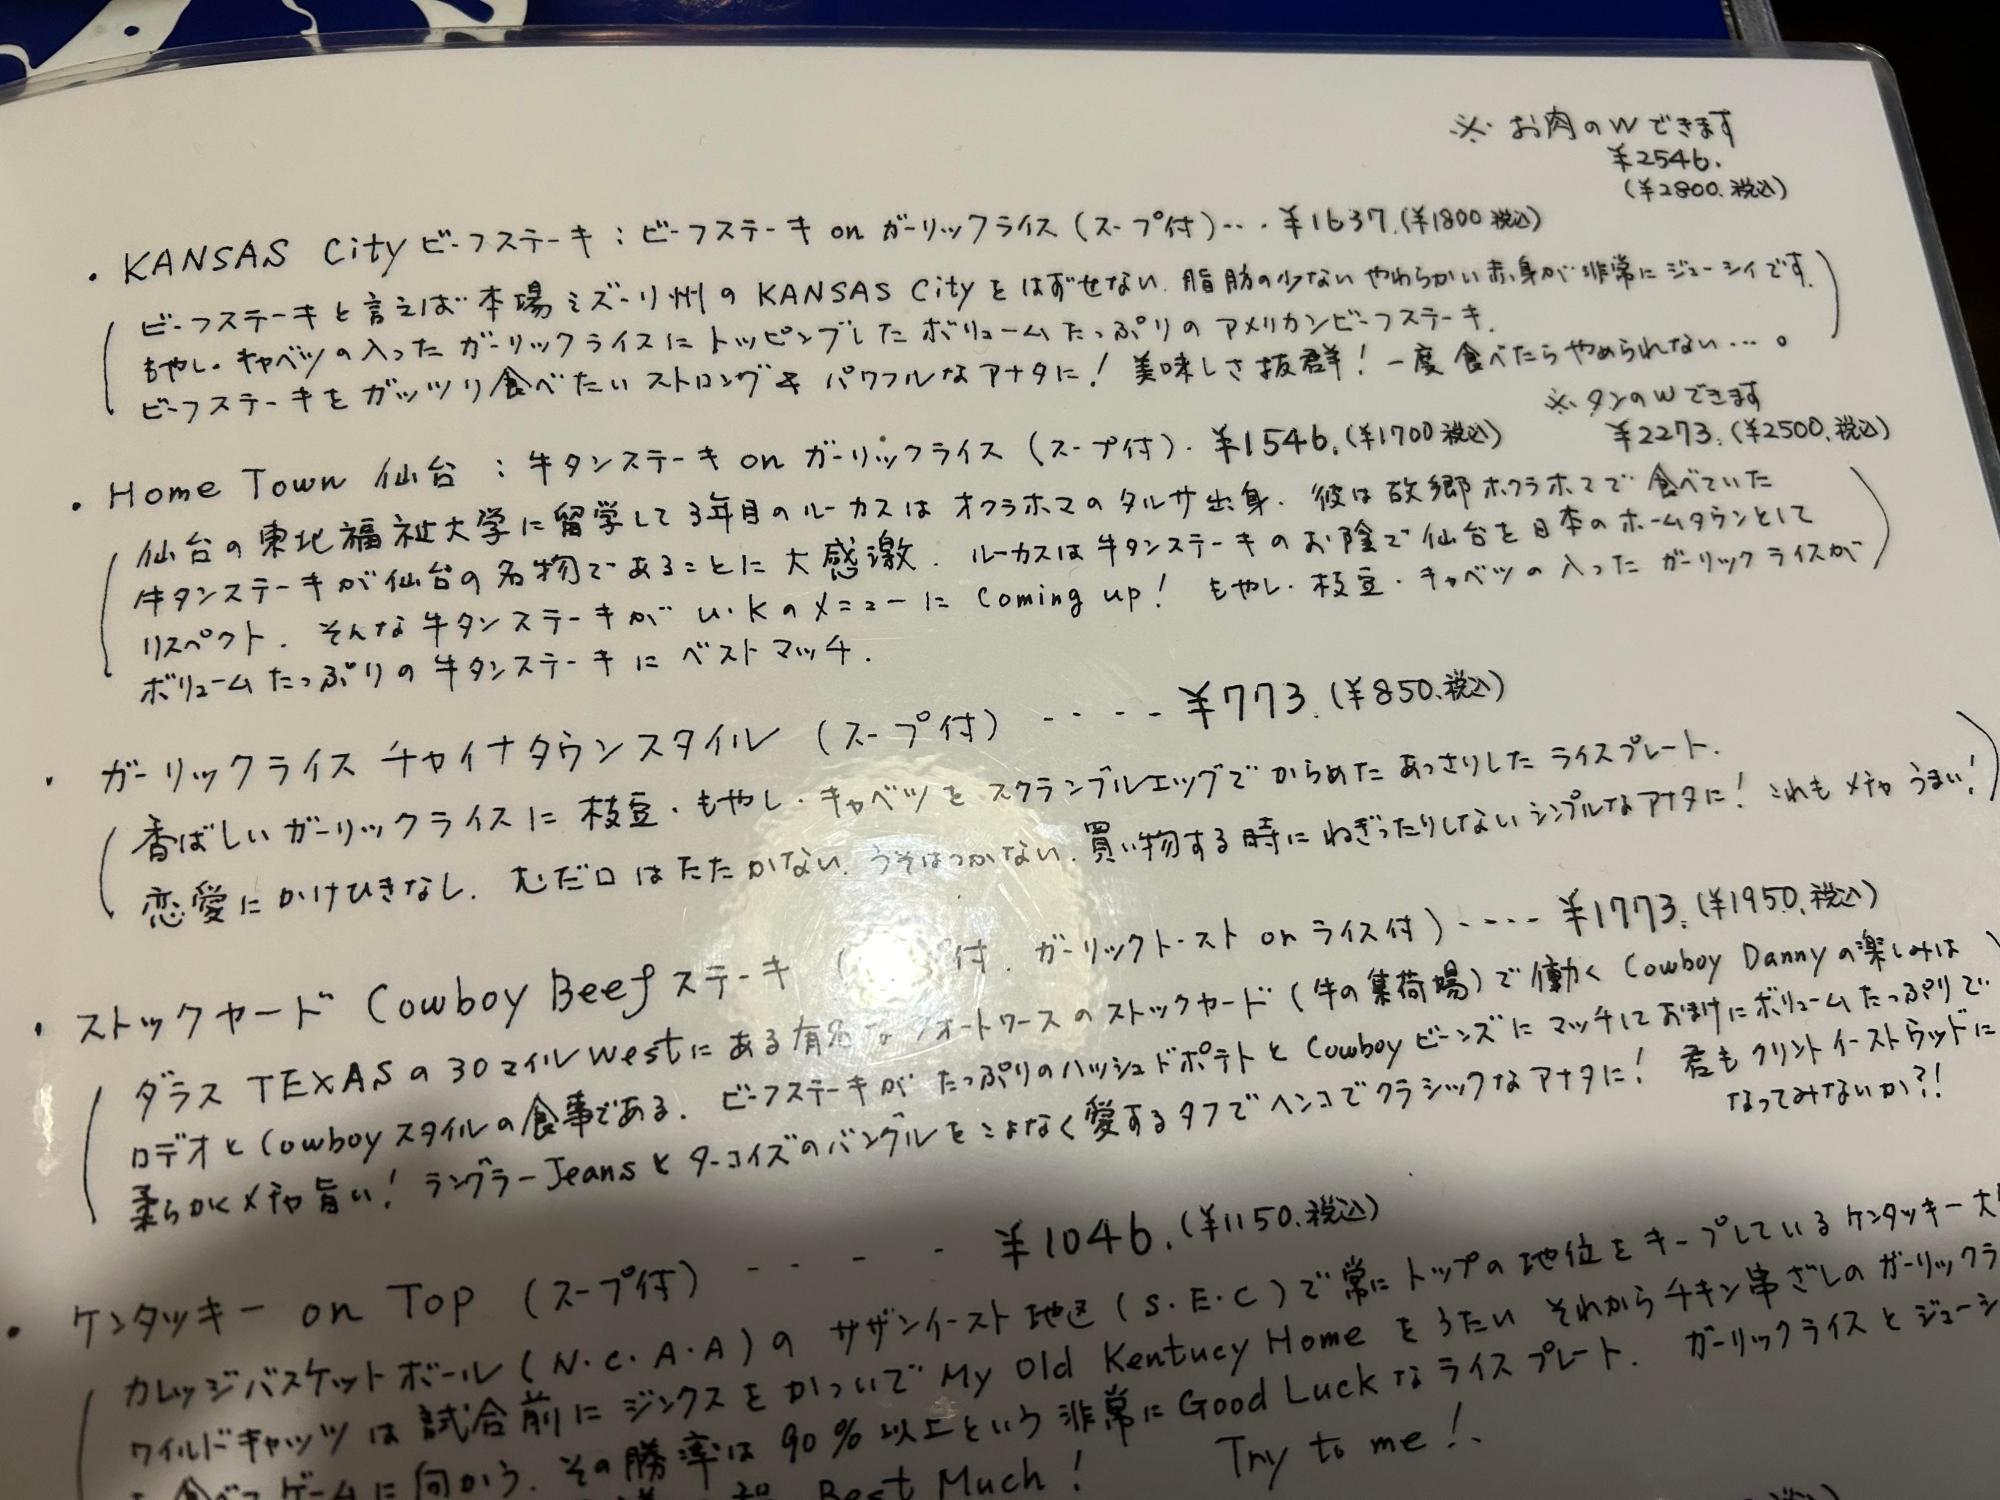 ※ お肉のWできます
¥2546.
(¥2800.税込)
・KANSAS City ビーフステーキ : ビーフステーキ on ガーリックライス (スープ付)・・・¥1637.(¥1800税込)
ビーフステーキと言えば本場ミズーリ州のKANSAS Cityをはずせない. 脂肪の少ないやわらかい赤身が非常にジューシイです.
もやし・キャベツの入ったガーリックライスにトッピングしたボリュームたっぷりのアメリカンビーフステーキ.
ビーフステーキをガッツリ食べたいストロング& パワフルなアナタに! 美味しさ抜群! 一度食べたらやめられない…。
※タンのWできます
・Home Town 仙台 : 牛タンステーキ on ガーリックライス (スープ付)・¥1546.(¥1700税込) ¥2273.(¥2500.税込)
仙台の東北福祉大学に留学して3年目のルーカスはオクラホマのタルサ出身. 彼は故郷オクラホマで食べていた
牛タンステーキが仙台の名物であることに大感激. ルーカスは牛タンステーキのお陰で仙台を日本のホームタウンとして
リスペクト. そんな牛タンステーキがU.Kのメニューに Coming up! もやし・枝豆・キャベツの入ったガーリックライスが
ボリュームたっぷりの牛タンステーキにベストマッチ.
・ガーリックライス チャイナタウンスタイル (スープ付) ‐‐‐‐ ¥773.(¥850.税込)
香ばしいガーリックライスに枝豆・もやし・キャベツをスクランブルエッグでからめたあっさりしたライスプレート.
恋愛にかけひきなし. むだ口はたたかない. うそはつかない. 買い物する時にねぎったりしないシンプルなアナタに! これもメチャうまい!
・ストックヤード Cowboy Beef ステーキ ( 付. ガーリックトースト or ライス付) ‐‐‐‐ ¥1773.(¥1950.税込)
ダラス TEXASの30マイルwestにある有名なフォートワースのストックヤード(牛の集荷場)で働くCowboy Dannyの楽しみは
ロデオとCowboyスタイルの食事である. ビーフステーキがたっぷりのハッシュドポテトとCowboyビーンズにマッチしておまけにボリュームたっぷりで
柔らかくメチャ旨い! ラングラーJeansとターコイズのバングルをこよなく愛するタフでヘンコでクラシックなアナタに! 君もクリントイーストウッドに
なってみないか?!
・ケンタッキー on Top (スープ付) ‐ ‐ ‐ ‐ ¥1046.(¥1150.税込)
カレッジバスケットボール(N.C.A.A)の サザンイースト地区(S.E.C)で常にトップの地位をキープしているケンタッキー大
ワイルドキャッツは試合前にジンクスをかついでMy Old Kentucy Homeをうたい それからチキン串ざしのガーリックラ
を食べてゲームに向かう. その勝率は90%以上という非常にGood Luckなライスプレート. ガーリックライスとジューシ
Best Much! Try to me!.